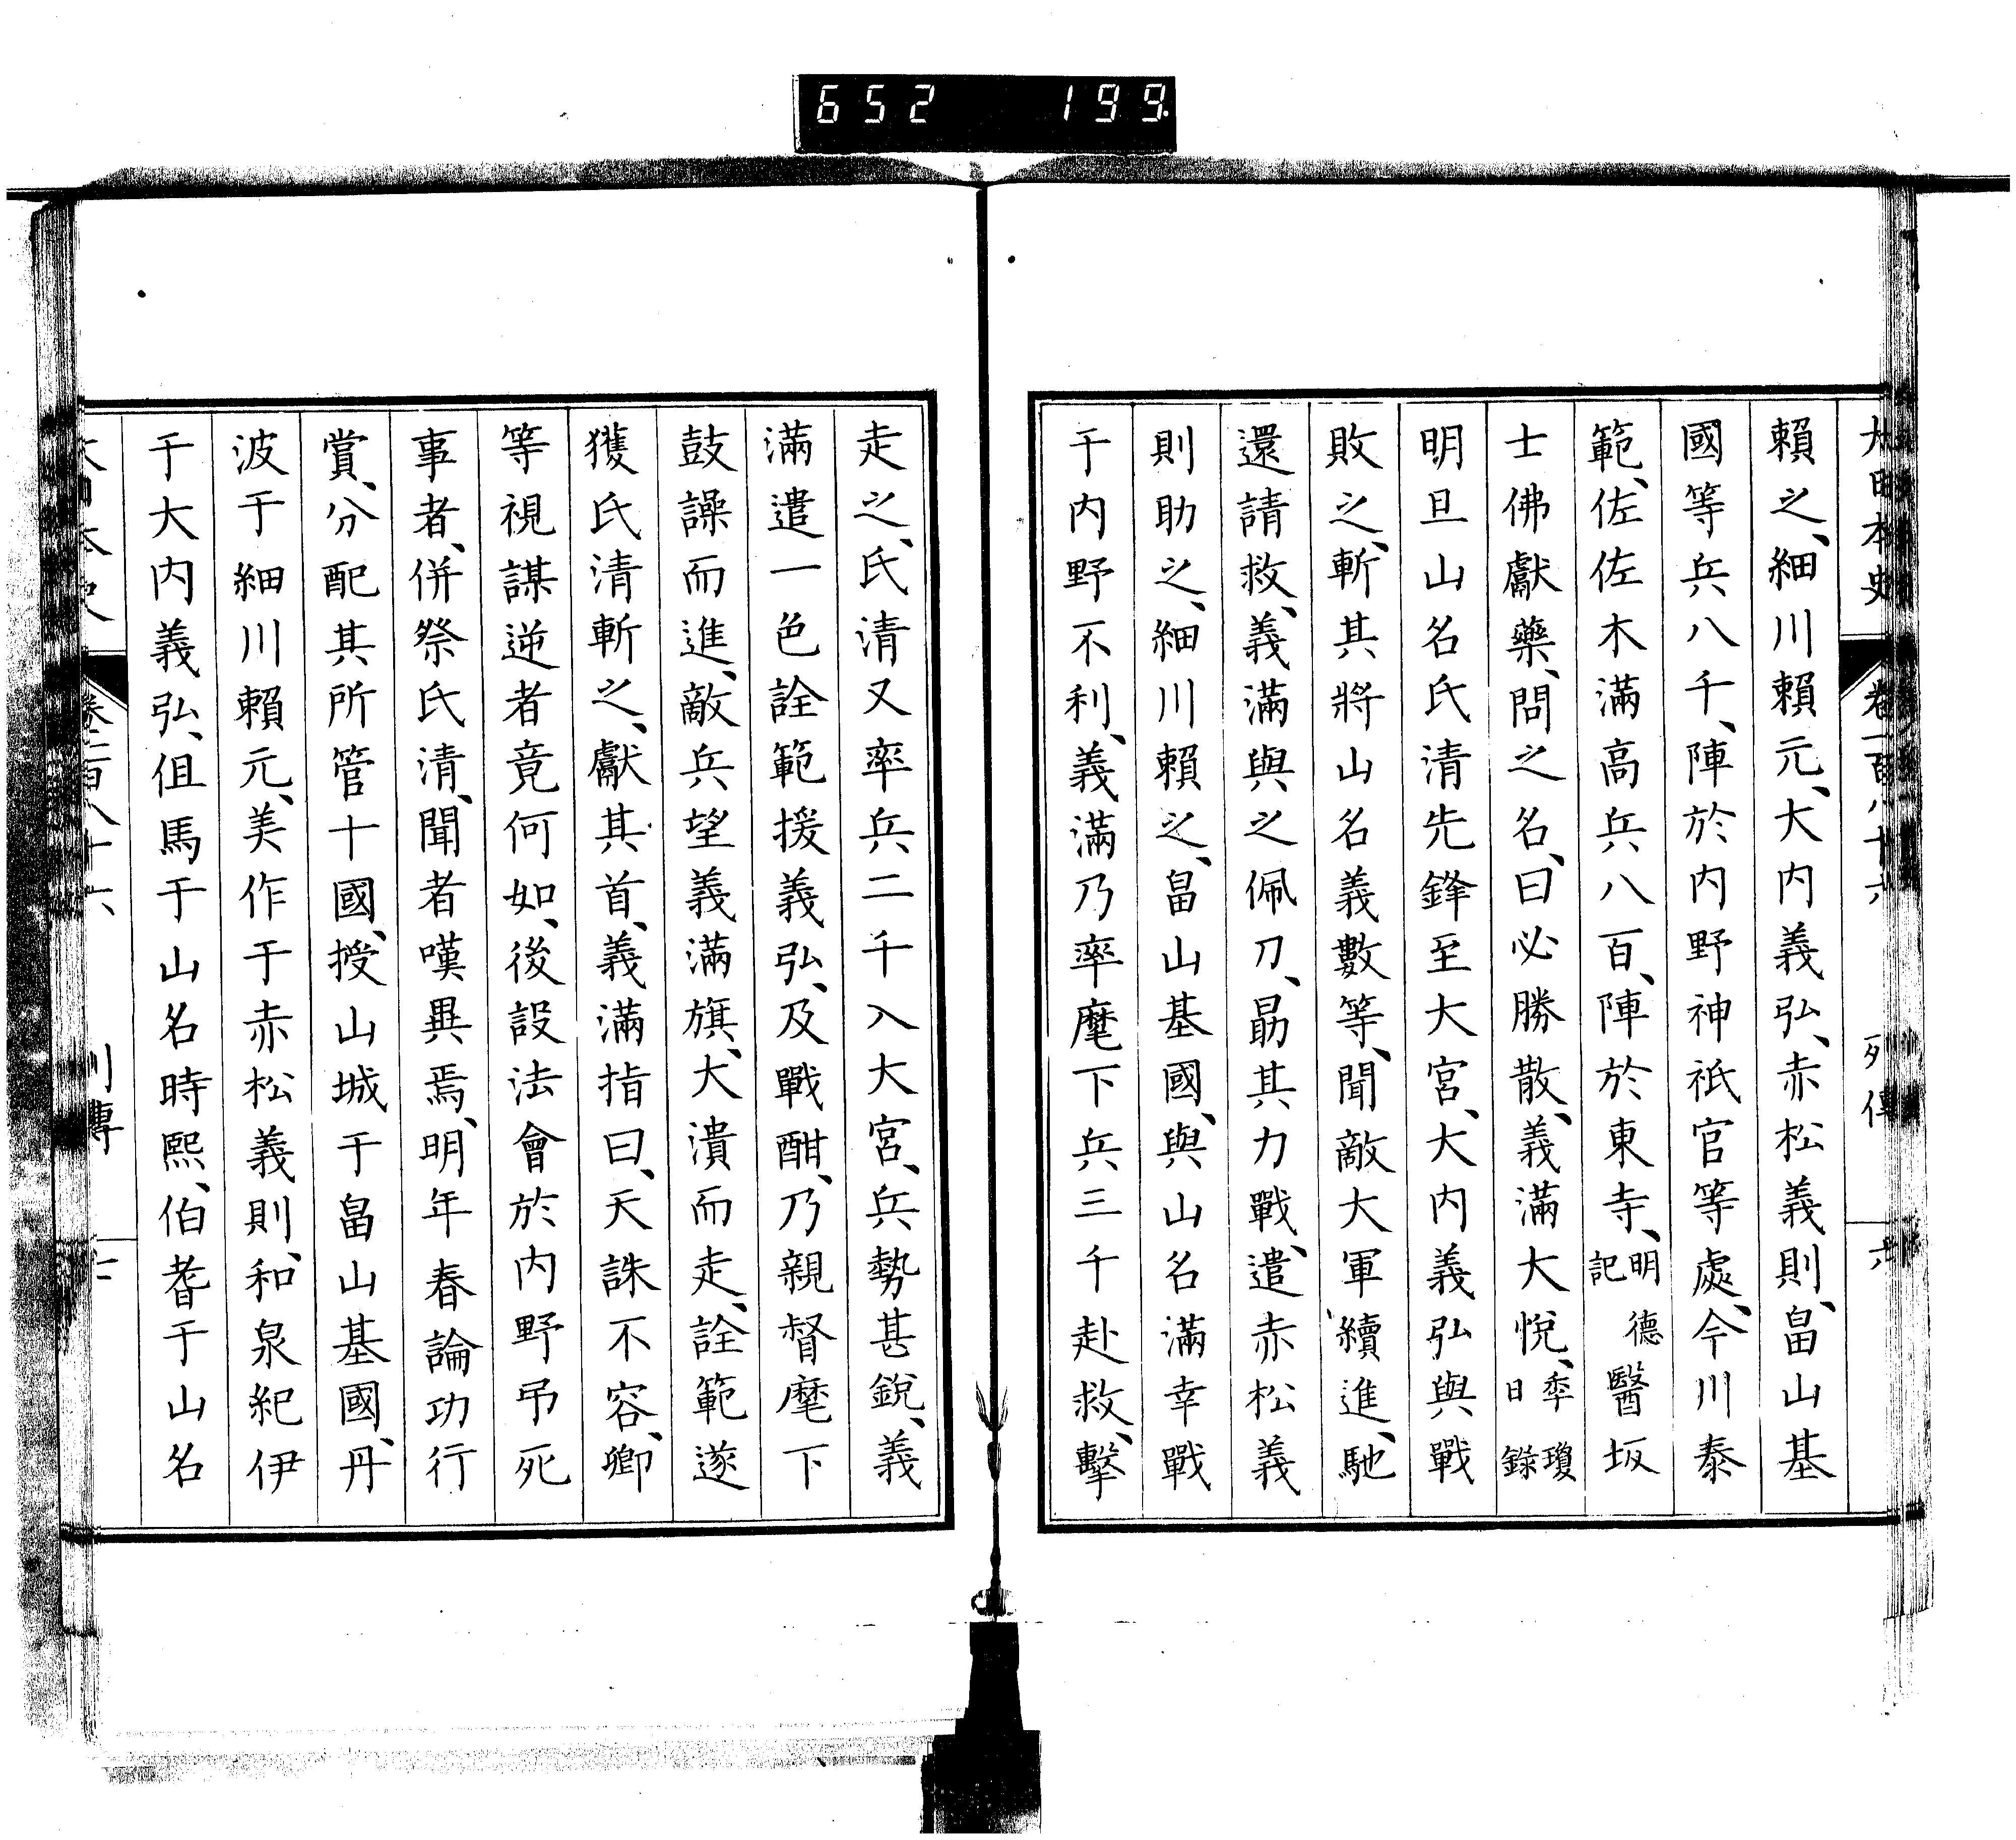 652 199
大日本史 卷一百八十六 列傳 六
賴之、細川賴元、大内義弘、赤松義則、畠山基
國等兵八千、陣於内野神祇官等處、今川泰
範、佐佐木滿高兵八百、陣於東寺、明德記醫坂
士佛獻藥、問之名、曰必勝散、義滿大悅、季瓊日錄
明旦山名氏清先鋒至大宮、大内義弘與戰
敗之、斬其將山名義數等、聞敵大軍續進、馳
還請救、義滿與之佩刀、勗其力戰、遣赤松義
則助之、細川賴之、畠山基國、與山名滿幸戰
于内野不利、義滿乃率麾下兵三千赴救、擊
走之、氏清又率兵二千入大宮、兵勢甚銳、義
滿遣一色詮範援義弘、及戰酣、乃親督麾下
鼓譟而進、敵兵望義滿旗、大潰而走、詮範遂
獲氏清斬之、獻其首、義滿指曰、天誅不容、卿
等視謀逆者竟何如、後設法會於内野弔死
事者、併祭氏清、聞者嘆異焉、明年春論功行
賞、分配其所管十國、授山城于畠山基國、丹
波于細川賴元、美作于赤松義則、和泉紀伊
于大内義弘、但馬于山名時熙、伯耆于山名
大日本史 卷一百八十六 列傳